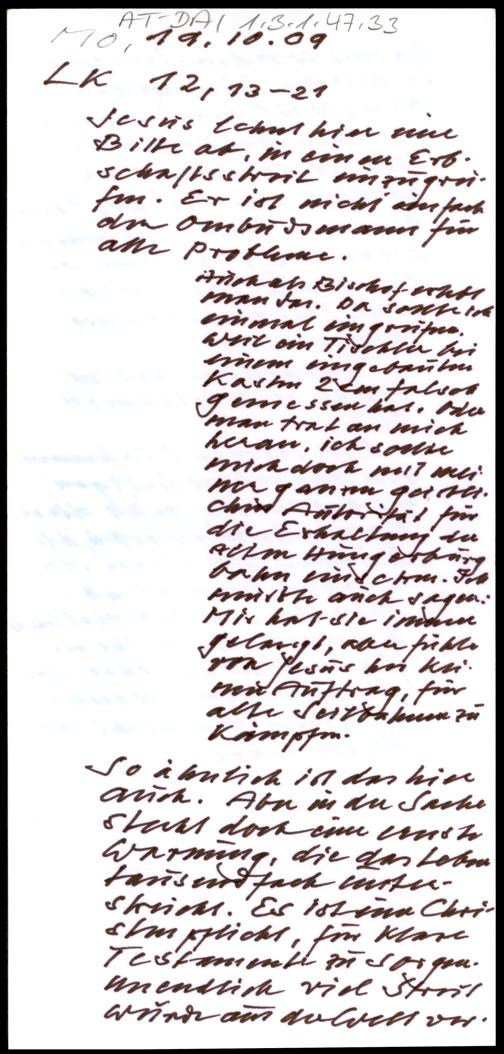 AT-DAI 1.3.1.47.33
Mo, 19.10.09
LK 12,13-21
Jesus lehnt hier eine
Bitte ab, in einen Erb-
schaftsstreit einzugrei-
fen. Er ist nicht einfach
der Ombudsmann für
alle Probleme.
Auch als Bischof erlebt
man das. Da sollte ich
einmal eingreifen,
weil ein Tischler bei
einem eingebauten
Kasten 2 cm falsch
gemessen hat. Oder
man trat an mich
heran, ich solle
mich doch mit mei-
ner ganzen geistli-
chen Autorität für
die Erhaltung der
alten Hungerburg
bahn einsetzen. Ich
mußte auch sagen:
Mir hat sie immer
gelangt, aber fühle
von Jesus her kei-
nen Auftrag, für
alte Seilbahnen zu
kämpfen.
So ähnlich ist das hier
auch. Aber in der Sache
steckt doch eine ernste
Warnung, die das Leben
tausendfach unter-
streicht. Es ist eine Chri-
stenpflicht, für klare
Testamente zu sorgen.
Unendlich viel Streit
würde aus der Welt ver-